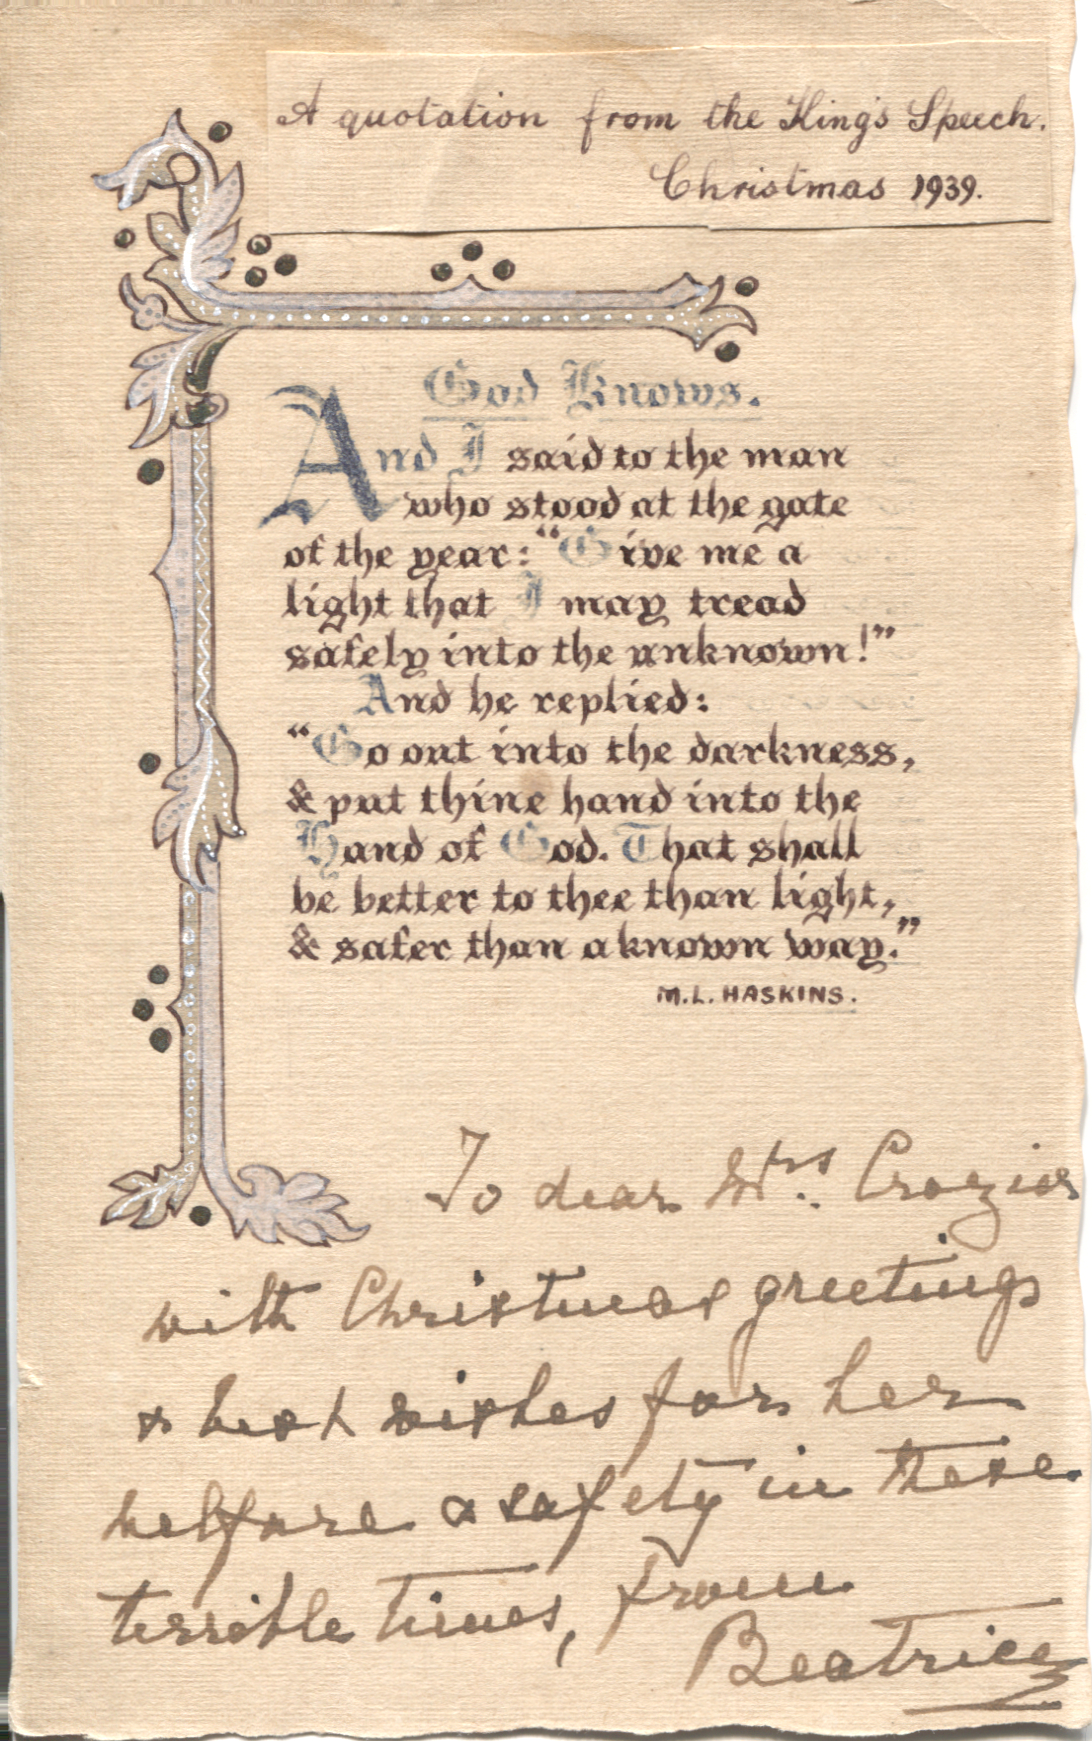 A quotation from the King's Speech.
Christmas 1939.
God Knows.
And I said to the man
who stood at the gate
of the year: "Give me a
light that I may tread
safely into the unknown!"
And he replied:
"Go out into the darkness,
& put thine hand into the
Hand of God. That shall
be better to thee than light,
& safer than a known way."
M.L. HASKINS.
To dear Mrs. Crozier
with Christmas greetings
& best wishes for her
welfare & safety in these
terrible times, from
Beatrice